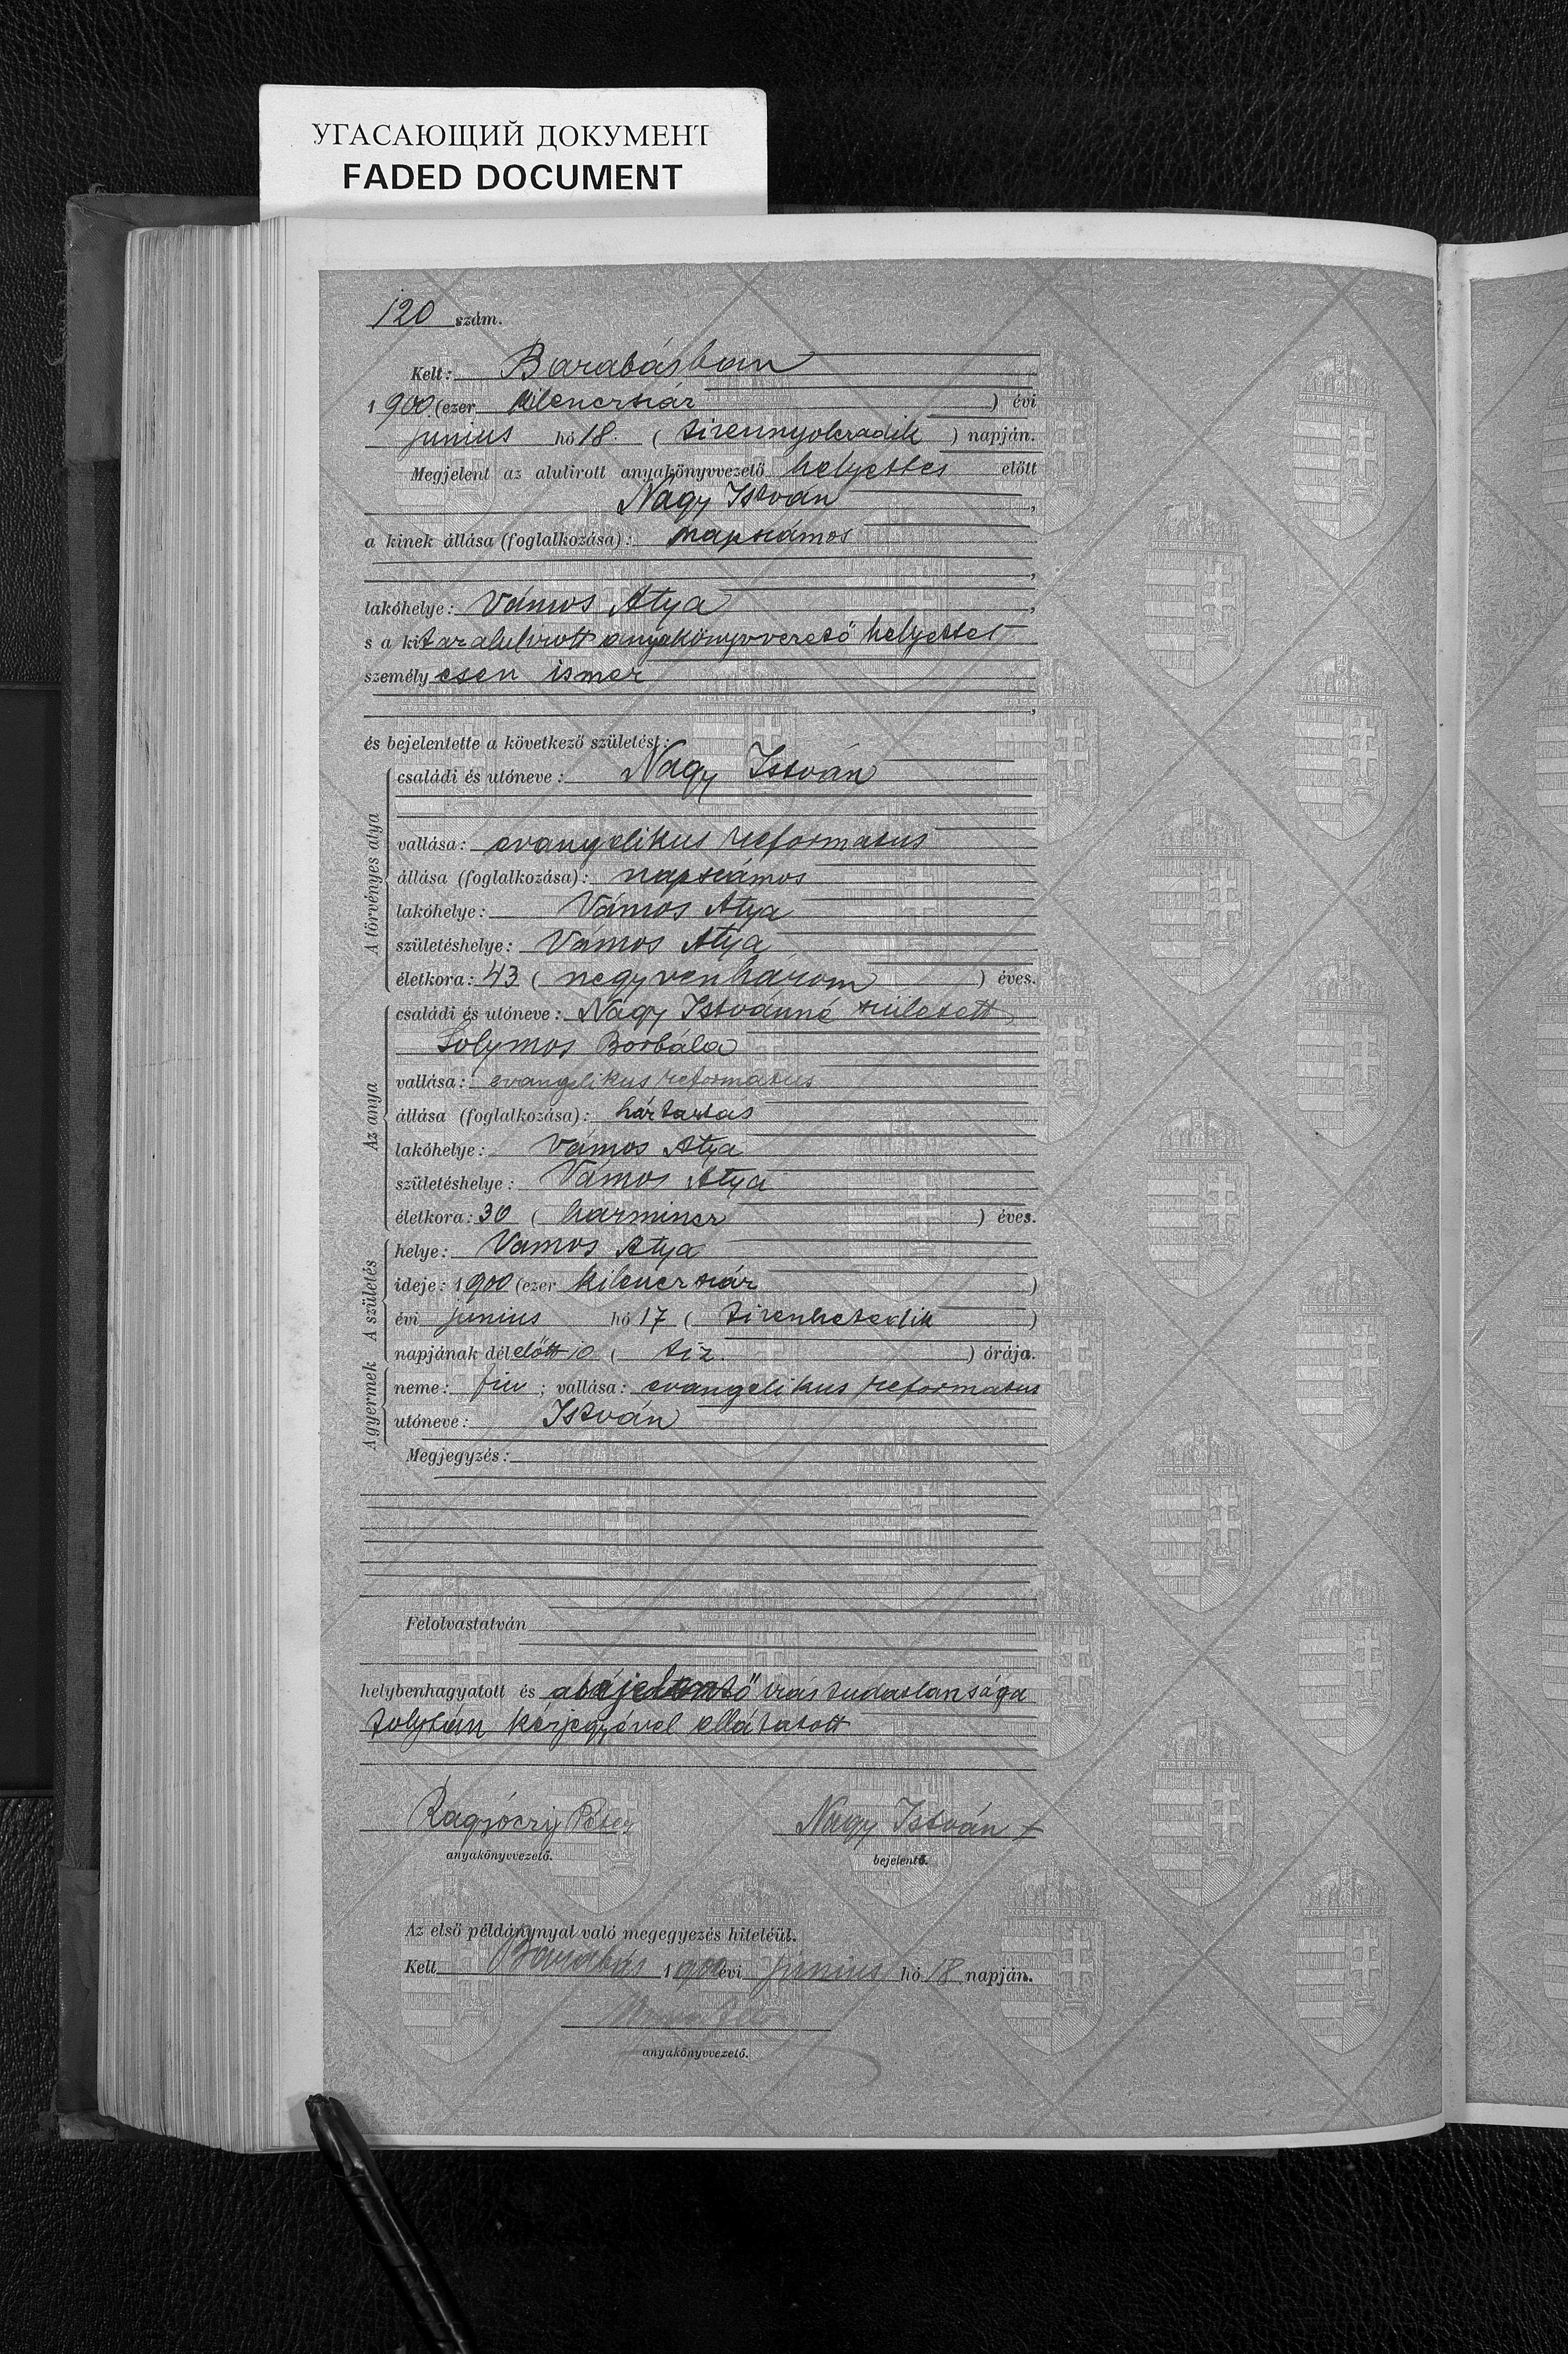 УГАСАЮЩИЙ ДОКУМЕНТ
FADED DOCUMENT
120 szám.
Kelt: Barabásban
1900 (ezer kilenczszáz ) évi
junius hó 18. ( tizennyolczadik ) napján.
Megjelent az alulirott anyakönyvvezető helyettes előtt
Nagy István ,
a kinek állása (foglalkozása): napszámos
,
lakóhelye: Vámos Atya ,
s a kit az alulirott anyakönyvvezető helyettes
személyesen ismer
,
és bejelentette a következő születést:
A törvényes atya
családi és utóneve: Nagy István
vallása: evangelikus reformatus
állása (foglalkozása): napszámos
lakóhelye: Vámos Atya
születéshelye: Vámos Atya
életkora: 43 ( negyvenhárom ) éves.
Az anya
családi és utóneve: Nagy Istvánné született
Solymos Borbála
vallása: evangelikus reformatus
állása (foglalkozása): háztartás
lakóhelye: Vámos Atya
születéshelye: Vámos Atya
életkora: 30 ( harmincz ) éves.
A születés
helye: Vámos Atya
ideje: 1900 (ezer kilenczszáz )
évi junius hó 17 ( tizenhetedik )
napjának délelőtt 10 ( tiz. ) órája.
A gyermek
neme: fiu ; vallása: evangelikus reformatus
utóneve: István
Megjegyzés:
Felolvastatván
helybenhagyatott és a bejelentő irástudatlansága
folytán kézjegyével ellátatott
Péter Nagy István +
anyakönyvvezető. bejelentő.
Az első példánynyal való megegyezés hiteléül.
Kelt Barabás 1900 évi junius hó 18 napján.
anyakönyvvezető.